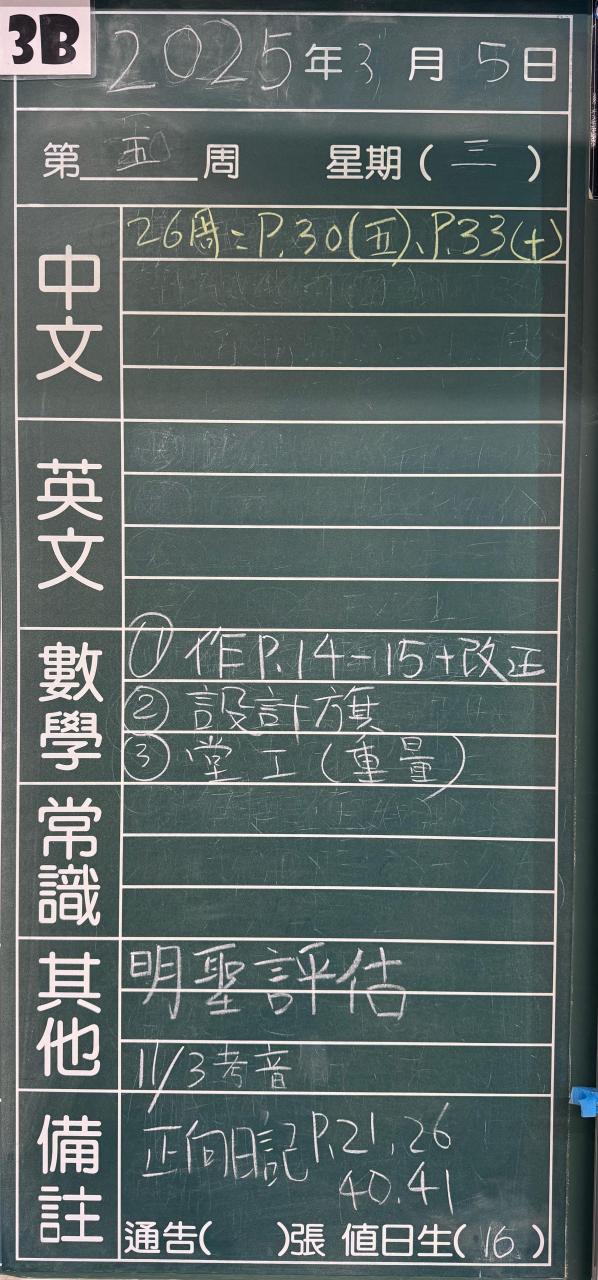 3B
2025年3月5日
第五周 星期(三)
中文
26周:P.30(五)、P.33(十)
英文
數學
① 作P.14-15+改正
② 設計旗
③ 堂工(重量)
常識
其他
明聖評估
11/3考音
備註
正向日記P.21.26
40.41
通告( )張 值日生(16)